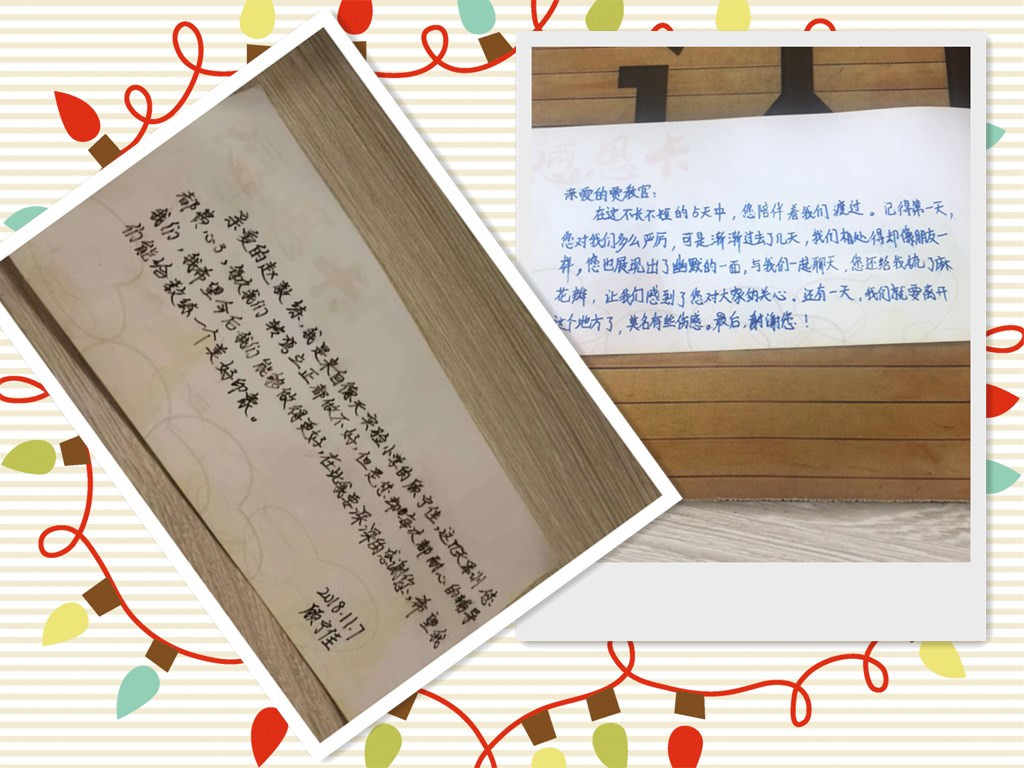 感恩卡
亲爱的赵教练,我是来自
这次军训您
都费心了,
转弯立正都做不好,但是您却每次都耐心的辅导
我们,我希望今后我们能够做得更好,在
深深的感谢您。希望我
们能给教练一个更好印象。
2018.11.7
感恩卡
亲爱的贾教官:
在这不长不短的5天中,您陪伴着我们渡过。记得第一天,
您对我们多么严厉,可是渐渐过去了几天,我们相处得却像朋友一
样。您也展现出了幽默的一面,与我们一起聊天,您还给我梳了麻
花辫,让我们感到了您对大家的关心。还有一天,我们就要离开
这个地方了,莫名有些伤感。最后,谢谢您!